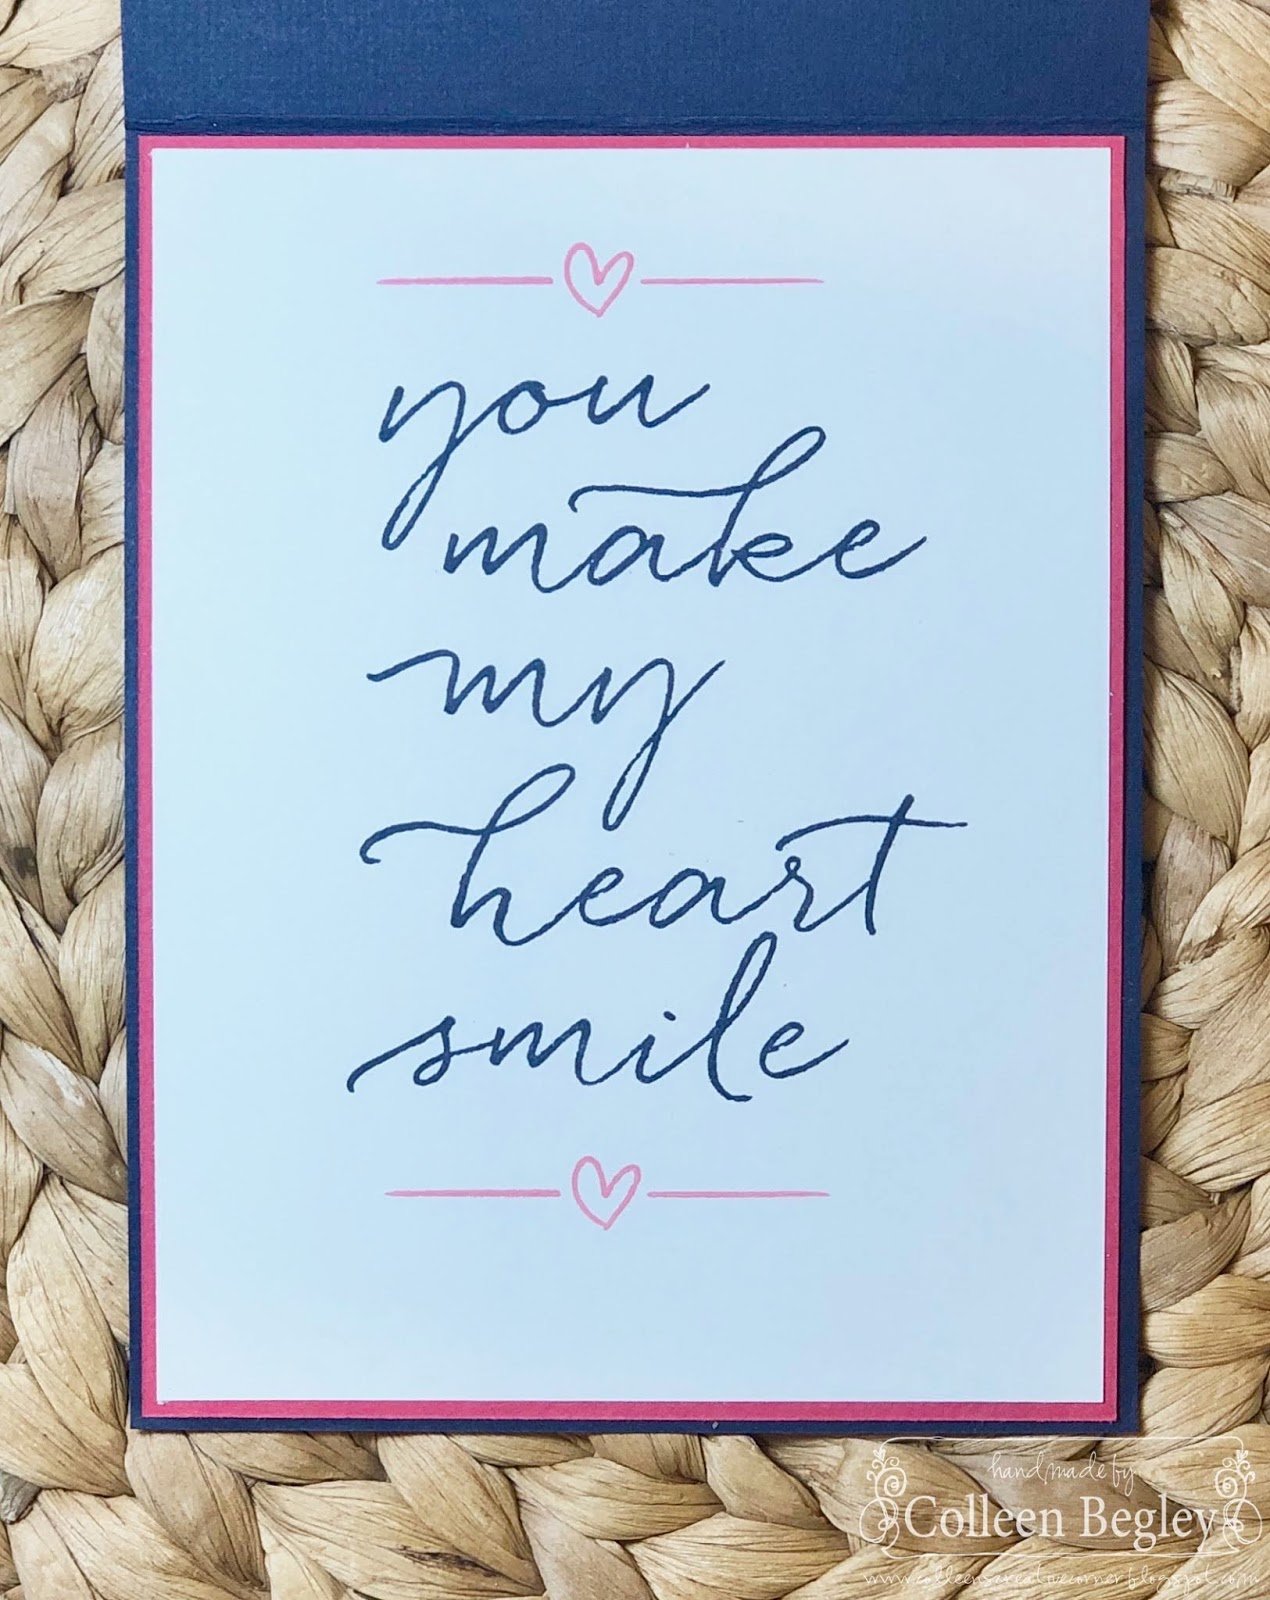 you
make
my
heart
smile
handmade by
Colleen Begley
www.colleenscreativecorner.blogspot.com